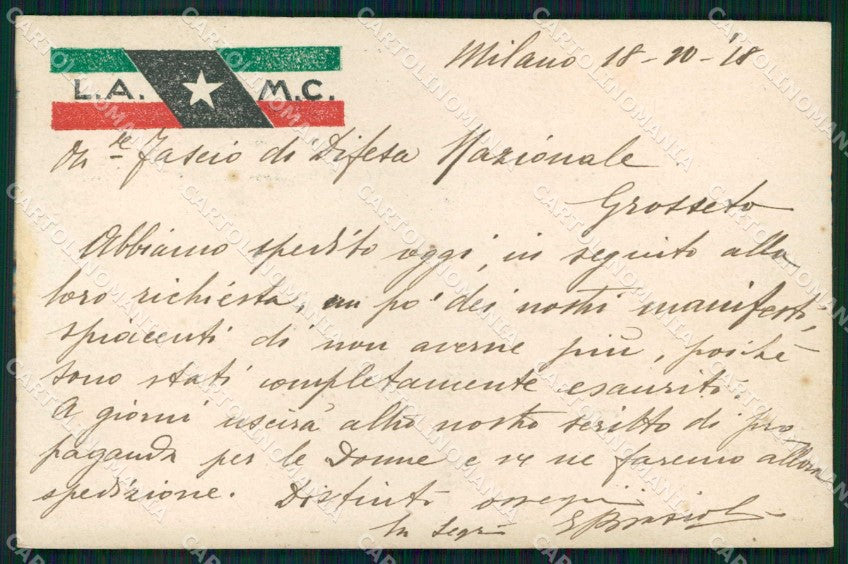 L.A. M.C.
Milano 18-10-'18
On.le Fascio di Difesa Nazionale
Grosseto
Abbiamo spedito oggi, in seguito alla
loro richiesta, un po' dei nostri manifesti,
spiacenti di non averne più, poichè
sono stati completamente esauriti.
A giorni uscirà altro nostro scritto di pro
paganda per le Donne e ve ne faremo allora
spedizione. Distinti ossequi
La Segr
CARTOLINOMANIA